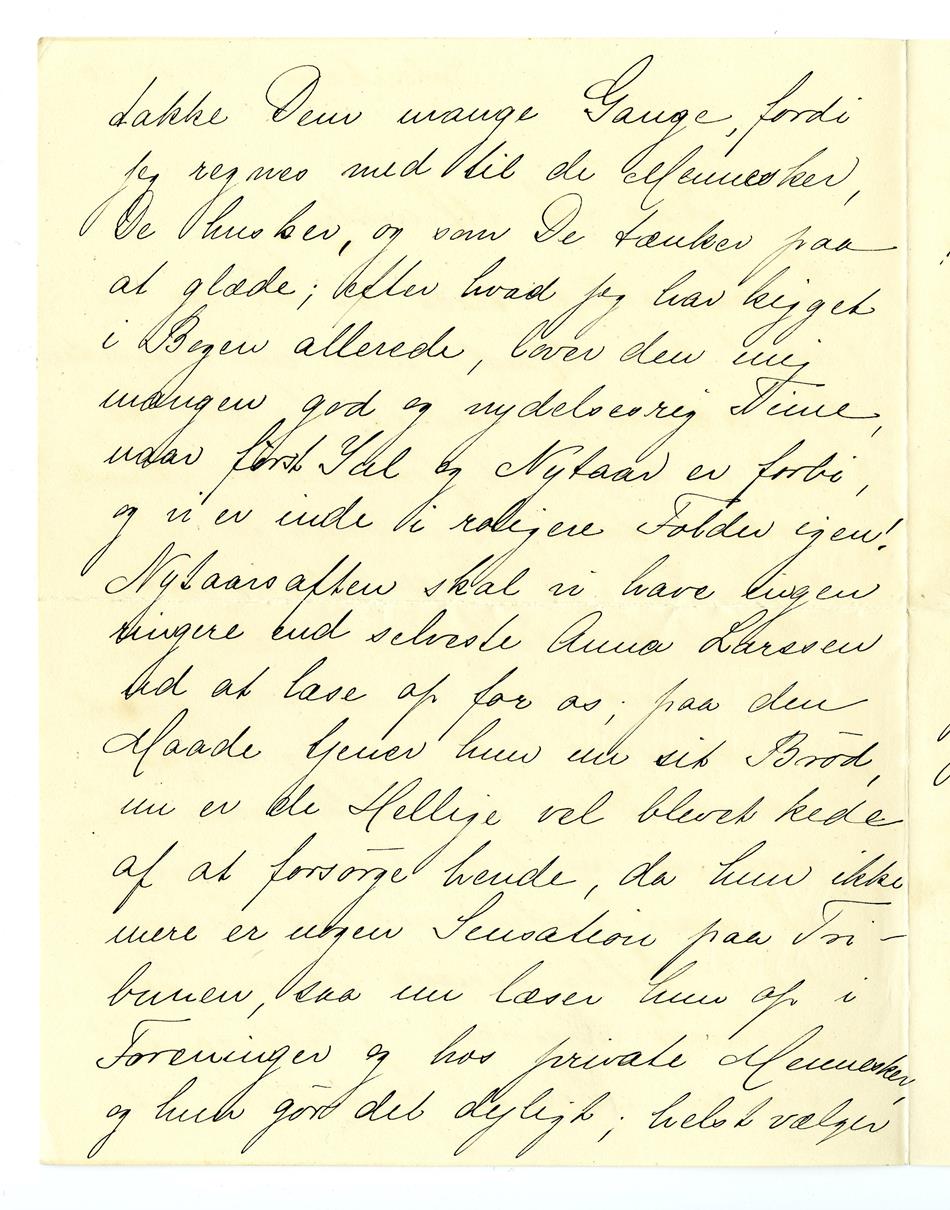 takke Dem mange Gange, fordi
jeg regnes med til de Mennesker,
De husker, og som De tænker paa
at glæde; efter hvad jeg har kigget
i Bogen allerede, lover den mig
mangen god og nydelsesrig Time,
naar først Jul og Nytaar er forbi,
og vi er inde i roligere Folder igen!
Nytaarsaften skal vi have ingen
ringere end selveste Anna Larssen
ud at læse op for os; paa den
Maade tjener hun nu sit Brød,
nu er de Hellige vel blevet kede
af at forsørge hende, da hun ikke
mere er nogen Sensation paa Tri-
bunen, saa nu læser hun op i
Foreninger og hos private Mennesker,
og hun gør det dejligt; helst vælger